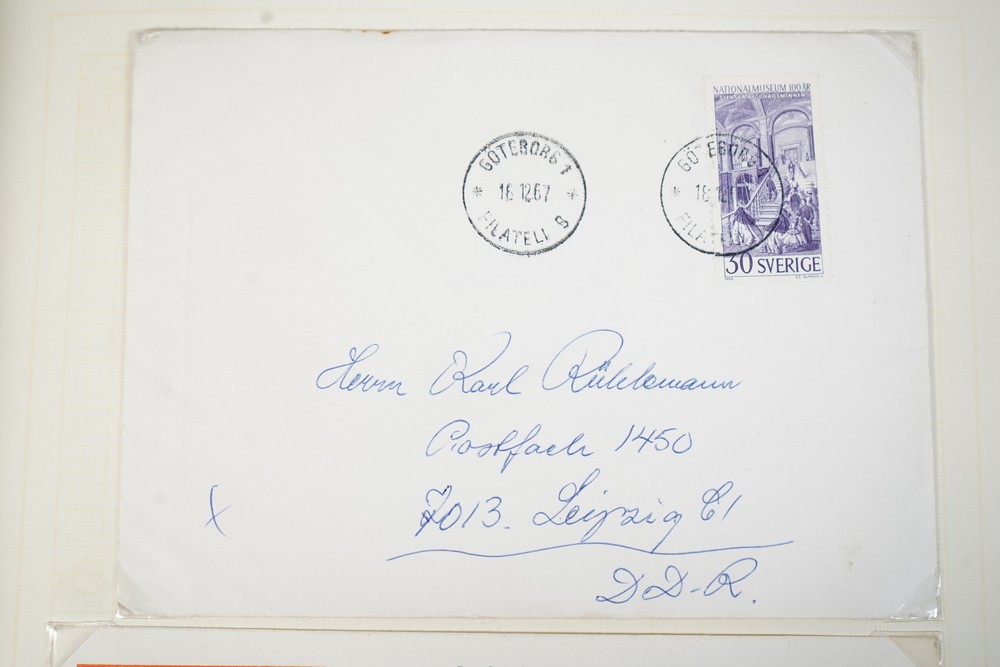 NATIONALMUSEUM 100 ÅR
GÖTEBORG 1
18 12 67
FILATELI
GÖTEBORG
18 12
FILATELI
30 SVERIGE
Herrn Karl
Postfach 1450
7013. Leipzig C1
D D-R.